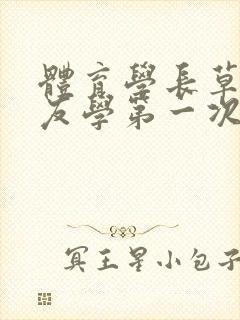 體育學長草
友學第一次
冥王星小包子